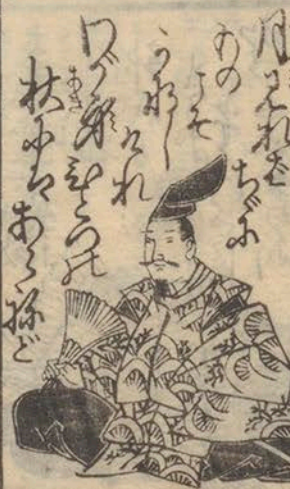 月みれば
ちゞに
もの
こそ
かなし
けれ
わが身ひとつの
秋にはあらねど
あき